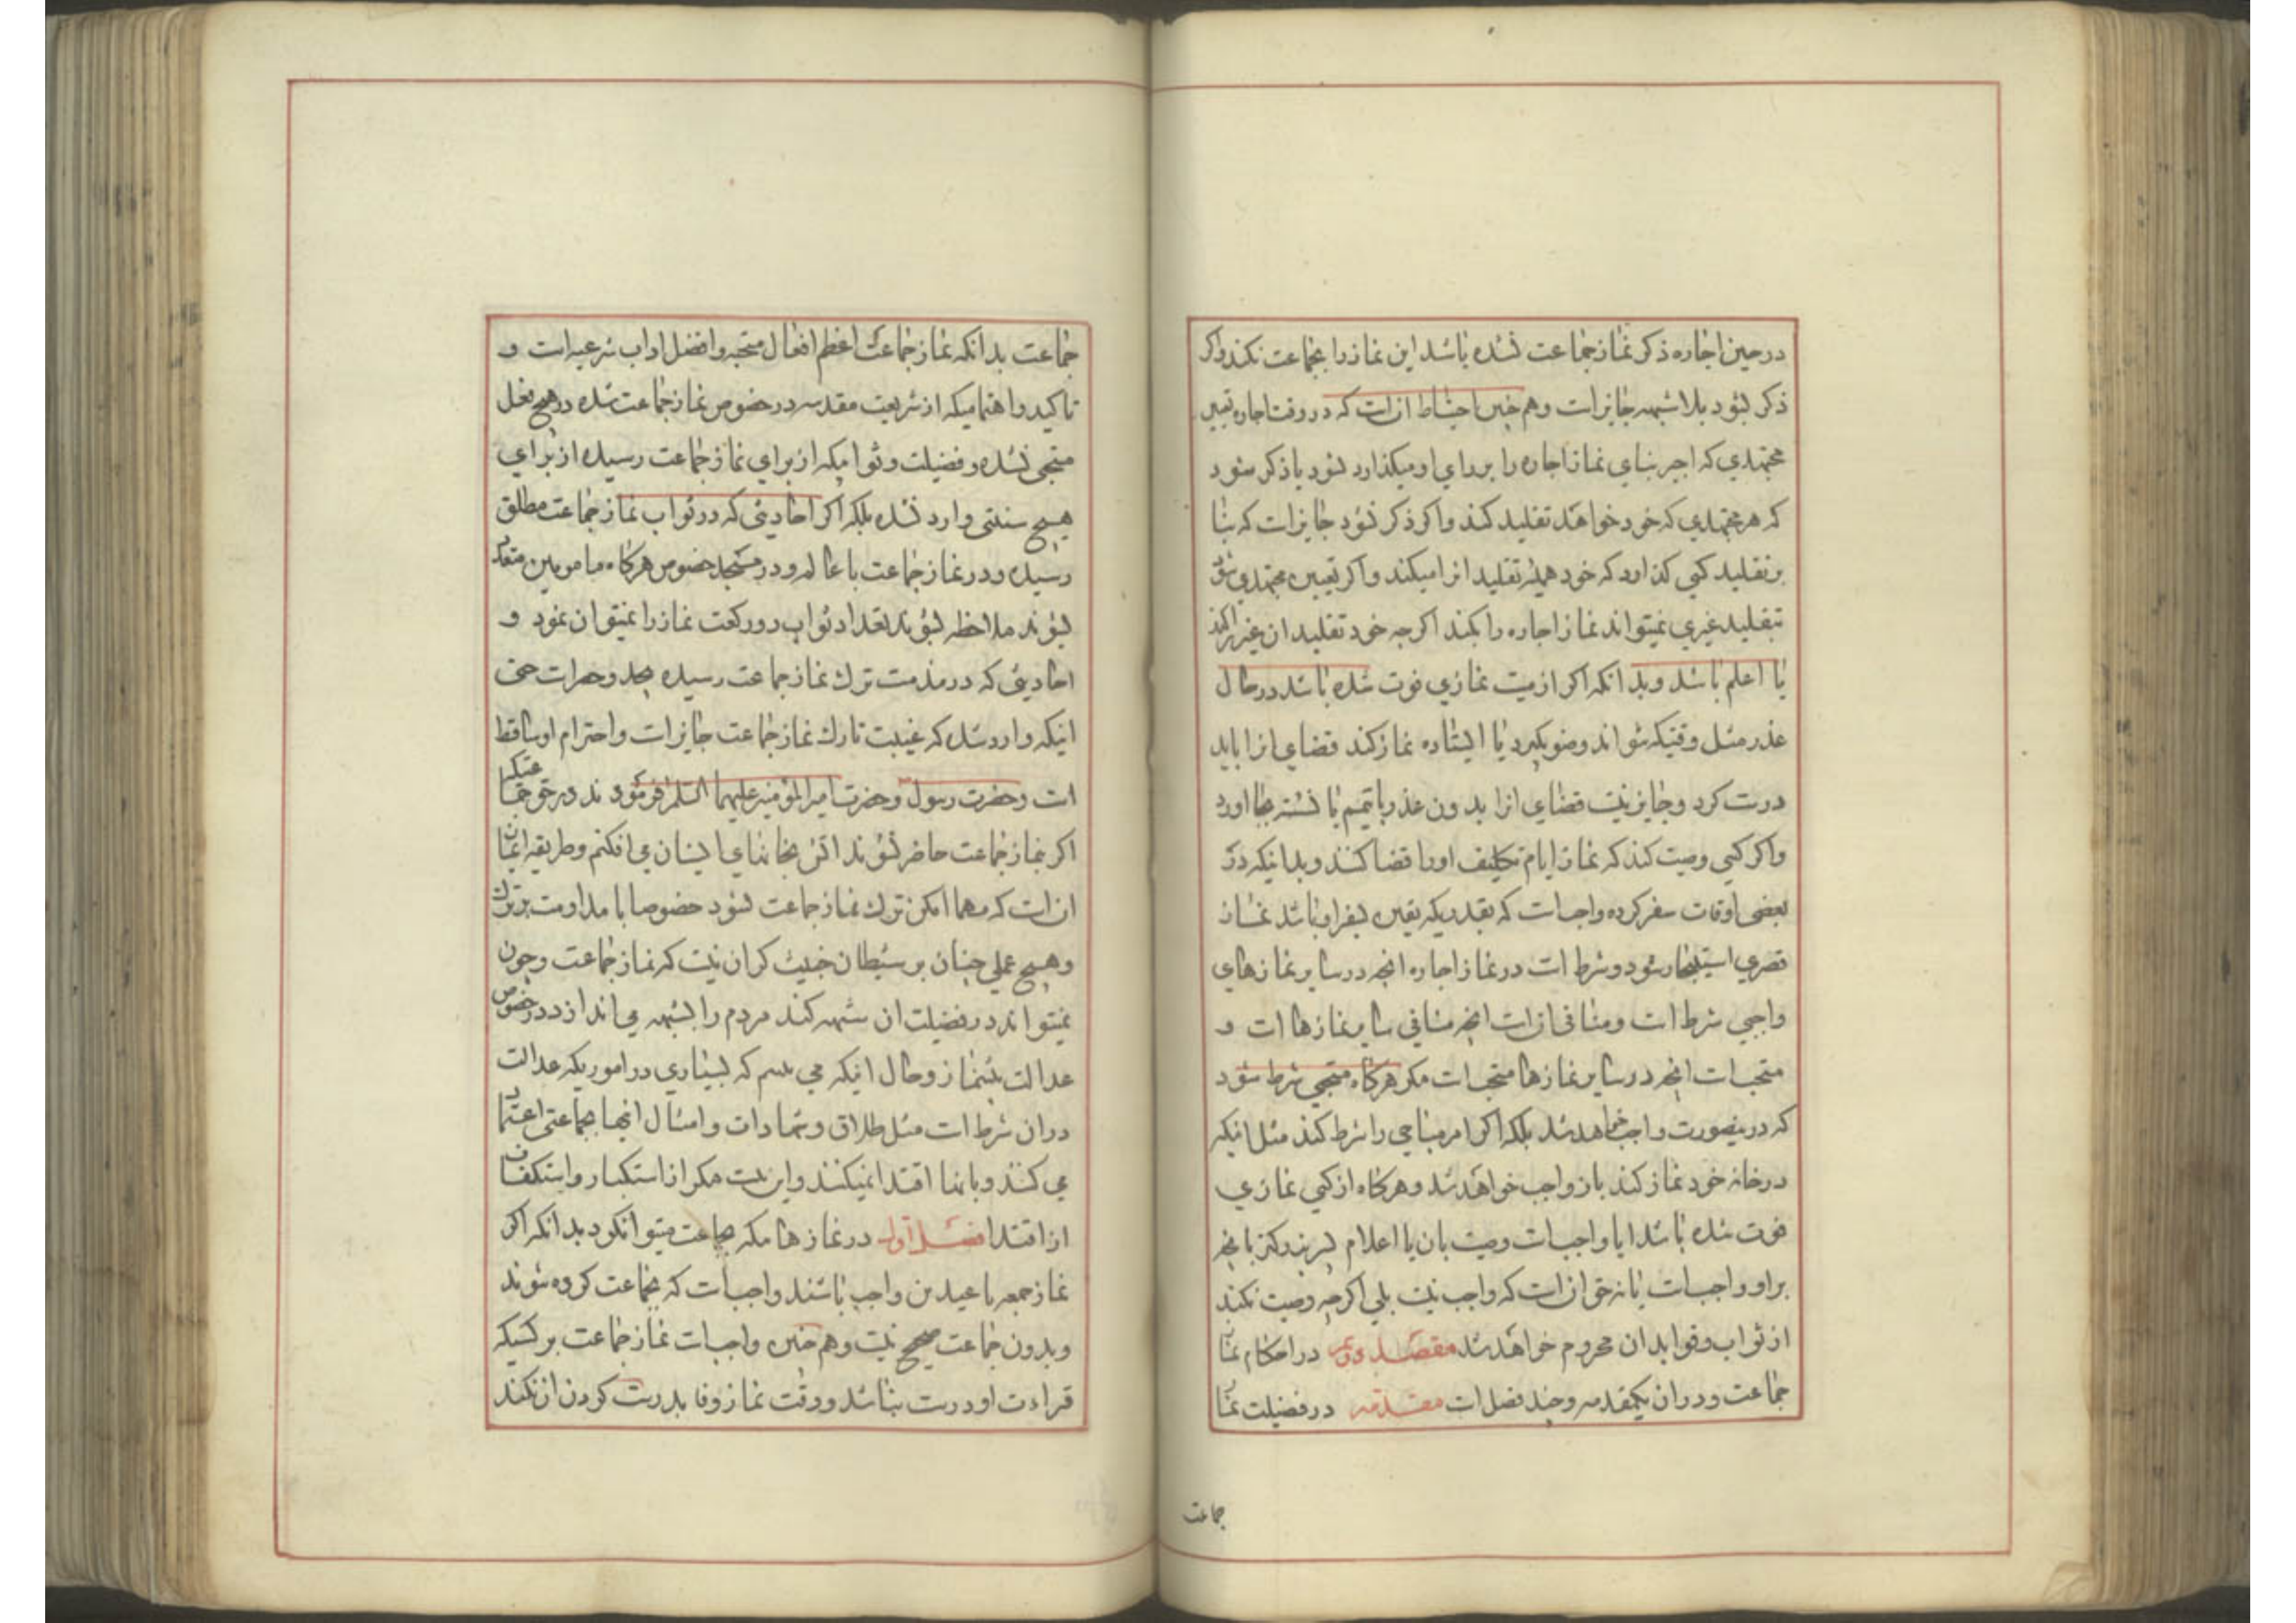 در حین اجاره ذکر نماز جماعت نشده باشد این نماز را بجماعت نکند واکر
ذکر نشود بلا شبهه جایز است وهم چنین احتیاط ان است که در وقت اجاره تعیین
مجتهدی که اجیر بنای نماز اجاره را بر رای او میکذارد بشود یا ذکر شود
که هر مجتهدی که خود خواهد تقلید کند واکر ذکر نشود جایز است که بنا
بر تقلید کسی کذارد که خود همیشه تقلید انرا میکند واکر تعیین مجتهدی شود
بتقلید غیری نمیتواند نماز اجاره را بکند اکرچه خود تقلید ان غیر را کند
یا اعلم باشد وبدانکه اکر از میت نمازی فوت شده باشد در حال
عذر مثل وقتیکه نتواند وضو بکیرد یا ایستاده نماز کند قضای انرا باید
درست کرد وجایز نیست قضای انرا بدون عذر با تیمم یا نشسته بجا اورد
واکر کسی وصیت کند که نماز ایام تکلیف اورا قضا کنند وبدانیکه در
بعضی اوقات سفر کرده واجب است که بقدریکه یقین بسفر او باشد نماز
قصری استیجار شود وشرط است در نماز اجاره انچه در سایر نمازهای
واجبی شرط است ومنافی ان است انچه منافی سایر نمازها است و
مستحب است انچه در سایر نمازها مستحب است مکر هرکاه مستحبی شرط شود
که درینصورت واجب خواهد شد بلکه اکر امر مباحی را شرط کند مثل اینکه
در خانه خود نماز کند باز واجب خواهد شد وهرکاه از کسی نمازی
فوت شده باشد ایا واجب است وصیت بان یا اعلام پسر بزرکتر بانچه
بر او واجب است یا نه حق ان است که واجب نیست بلی اکرچه وصیت نکند
از ثواب وفواید ان محروم خواهد شد مقصد دویم در احکام نماز
جماعت ودر ان یکمقدمه وچند فصل است مقدمه در فضیلت نماز
جماعت
جماعت بدانکه نماز جماعت اعظم افعال مستحبه وافضل اداب شرعیه است و
تاکید واهتمامیکه از شریعت مقدسه در خصوص نماز جماعت شده در هیچ فعل
مستحبی نشده وفضیلت وثوابیکه از برای نماز جماعت رسیده از برای
هیچ سنتی وارد نشده بلکه اکر احادیثی که در ثواب نماز جماعت مطلق
رسیده ودر نماز جماعت با عالم ودر مسجد خصوص هرکاه مامومین متعدد
بشوند ملاحظه بشوند تعداد ثواب دو رکعت نماز را نمیتوان نمود و
احادیثی که در مذمت ترك نماز جماعت رسیده بیحد وحصر است حتی
اینکه وارد شده که غیبت تارك نماز جماعت جایز است واحترام او ساقط
است وحضرت رسول وحضرت امیر المؤمنین علیهما السلم فرمودند در حق جماعتیکه
اکر بنماز جماعت حاضر نشوند اتش بخانهای ایشان می افکنم وطریقه ایمان
ان است که مهما امکن ترك نماز جماعت نشود خصوصا با مداومت بر ترك
وهیچ عملی چنان بر شیطان خبیث کران نیست که نماز جماعت وچون
نمیتواند در فضیلت ان شبهه کند مردم را بشبهه می اندازد در خصوص
عدالت پیشنماز وحال اینکه می بینم که بسیاری در اموریکه عدالت
در ان شرط است مثل طلاق وشهادات وامثال انها بجماعتی اعتماد
می کنند وبانها اقتدا نمیکنند واین نیست مکر از استکبار واستنکاف
از اقتدا فصل اول در نمازهائیکه بجماعت میتوان کرد بدانکه اکر
نماز جمعه یا عیدین واجب باشند واجب است که بجماعت کرده شوند
وبدون جماعت صحیح نیست وهم چنین واجب است نماز جماعت بر کسیکه
قراءت او درست نباشد ووقت نماز وفا بدرست کردن ان نکند